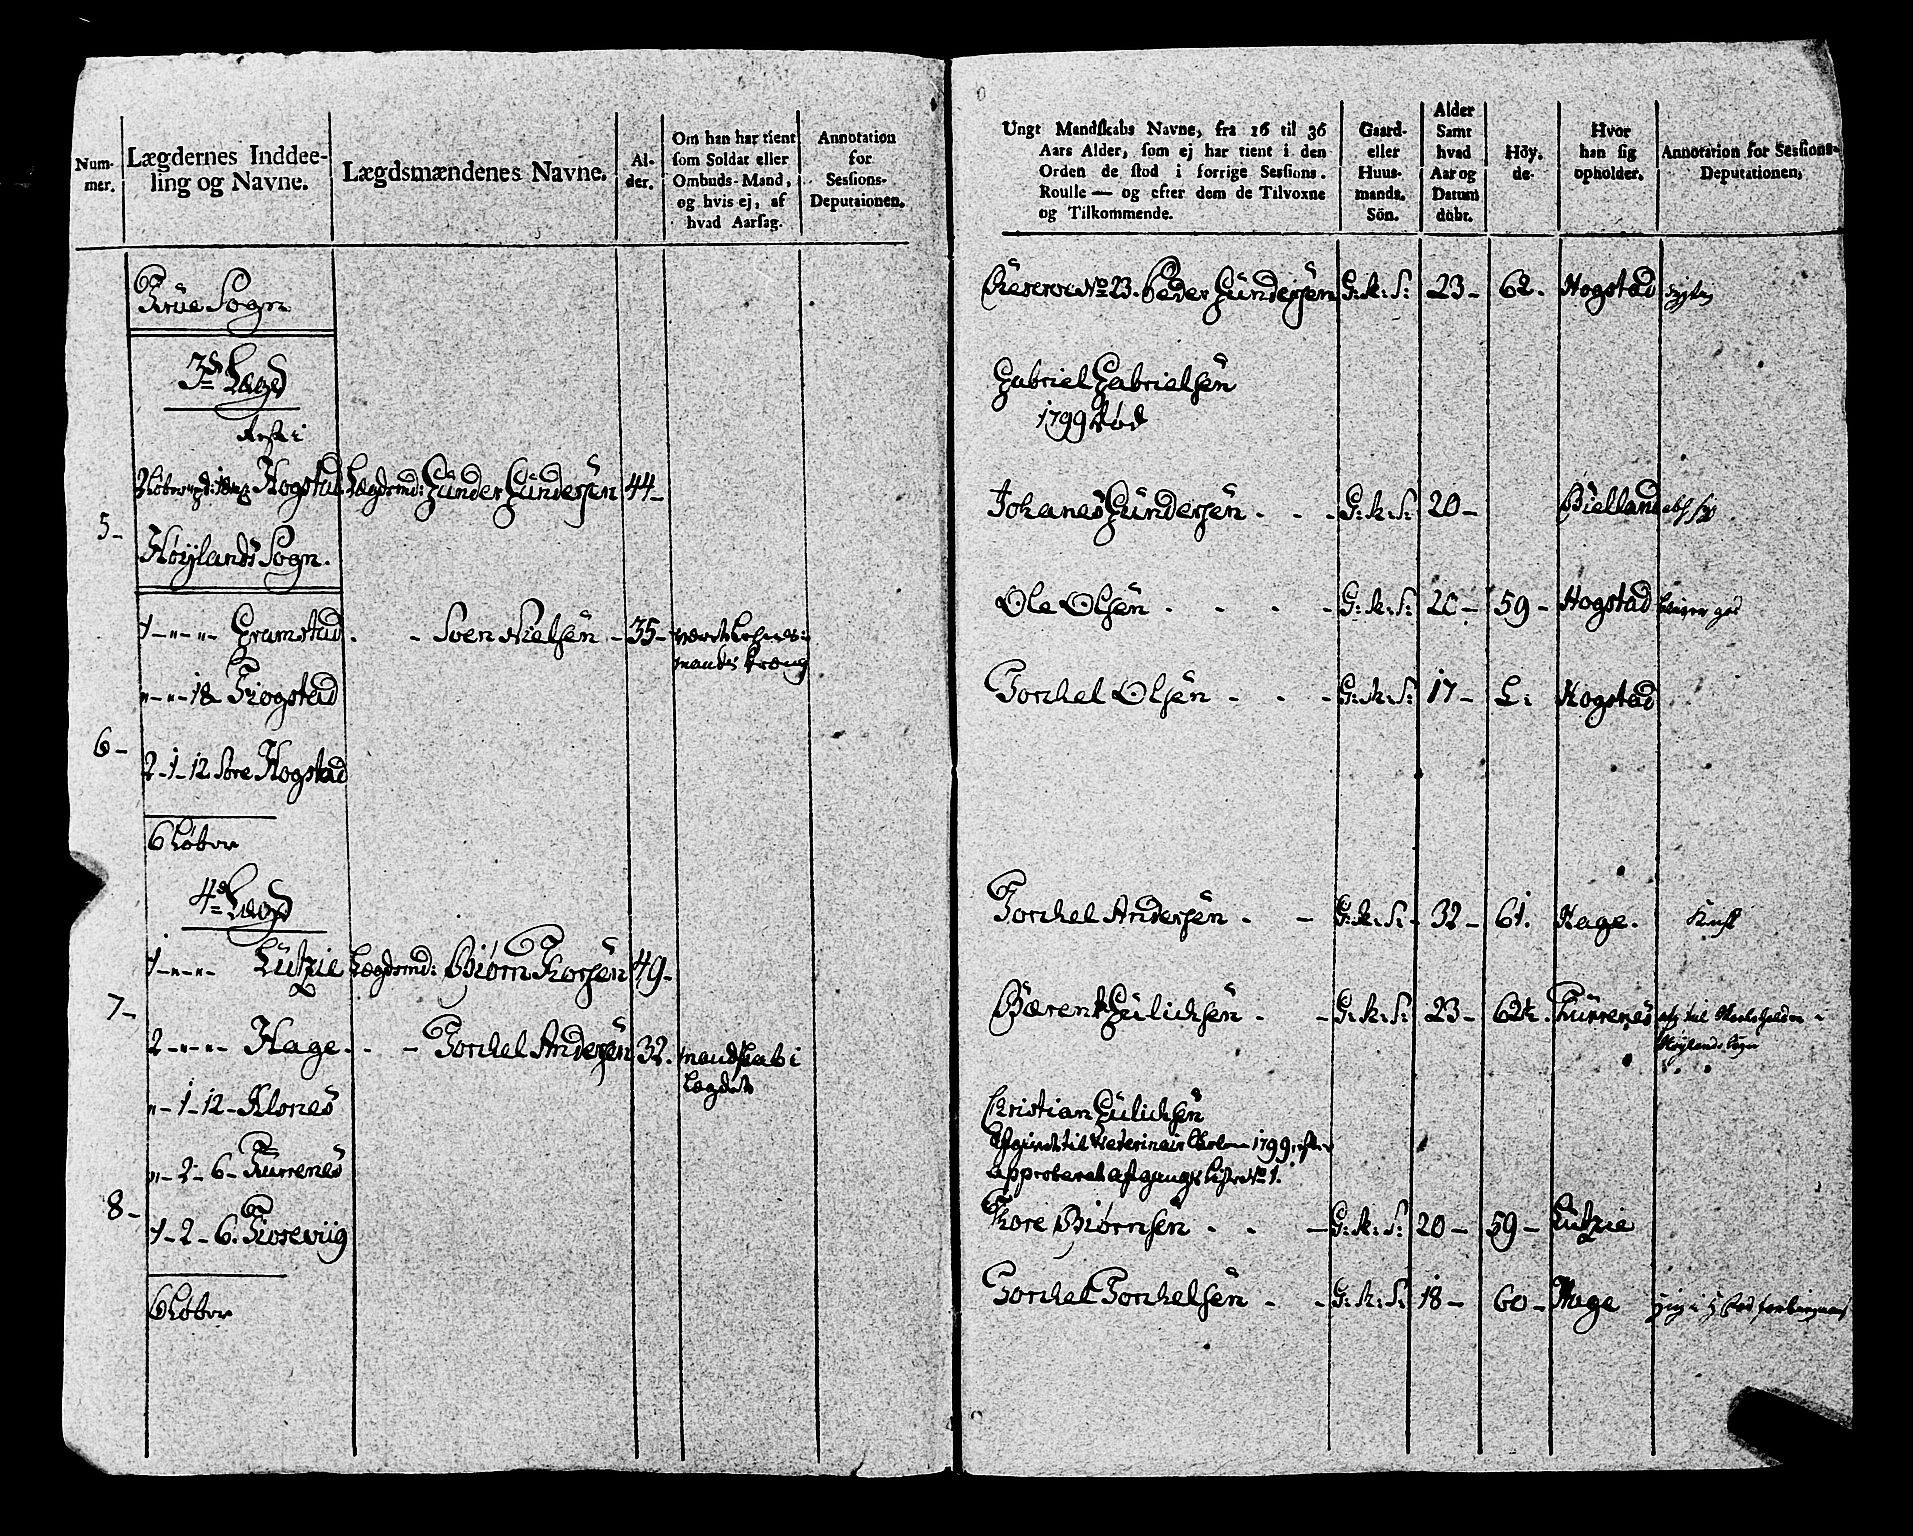 Num-
mer.
Lægdernes Inddee-
ling og Navne.
Lægdsmændenes Navne.
Al-
der.
Om han har tient
som Soldat eller
Ombuds-Mand,
og hvis ej, af
hvad Aarsag.
Annotation
for
Sessions-
Deputaionen.
Trüe Sogn
3d Lægd
Hogstad Lægdsmd: Günder Gündersen 44-
5-
Høÿlands Sogn.
1-"-"- Gramstad. - Soen Nielsen - 35-
"-"-18 Tiogstad
6-
2-1-12 Søre Hogstad
6 Løber
4de Lægd
1-"-"- Lutzie Lægdsmd: Biørn Thorsen 49-
7-
2-"-"- Hage. - - Torchel Andersen 32. mandskab i
Lægdet
"-1-12- Kloneß
"-2-6- Turreneß
8-
1-2-6. Tioseviig
6 Løber
Ungt Mandskabs Navne, fra 16 til 36
Aars Alder, som ej har tient i den
Orden de stod i forrige Sessions.
Roulle — og efter dem de Tilvoxne
og Tilkommende.
Gaard-
eller
Huus-
mands.
Sön.
Alder
Samt
hvad
Aar og
Datum
döbt.
Höy.
de-
Hvor
han sig
opholder.
Annotation for Sessions-
Deputationen,
Reserve No 23. Peder Gündersen G:K:S: 23- 62. Hogstad
Gabriel Gabrielsen
1799 død
Johanes Gündersen - - - G:K:S: 20- Bielland
Ole Olsen . - - - G:K:S: 20- 59- Hogstad
Torchel Olsen - - - G:K:S: 17- L: Hogstad
Torchel Andersen . - G:K:S: 32- 61. Hage.
Bærent Gulichsen . - G:K:S: 23- 62½. Turreneß
Høylands Sogn
Christian Gulichsen
Afgived til Veterinair Scolen 1799, efter
approberet afgangs Liste No 1.
Thore Biørnsen . - - G:K:S: 20- 59- Lutzie
Torchel Torchelsen - - G:K:S: 18- 60- Hage